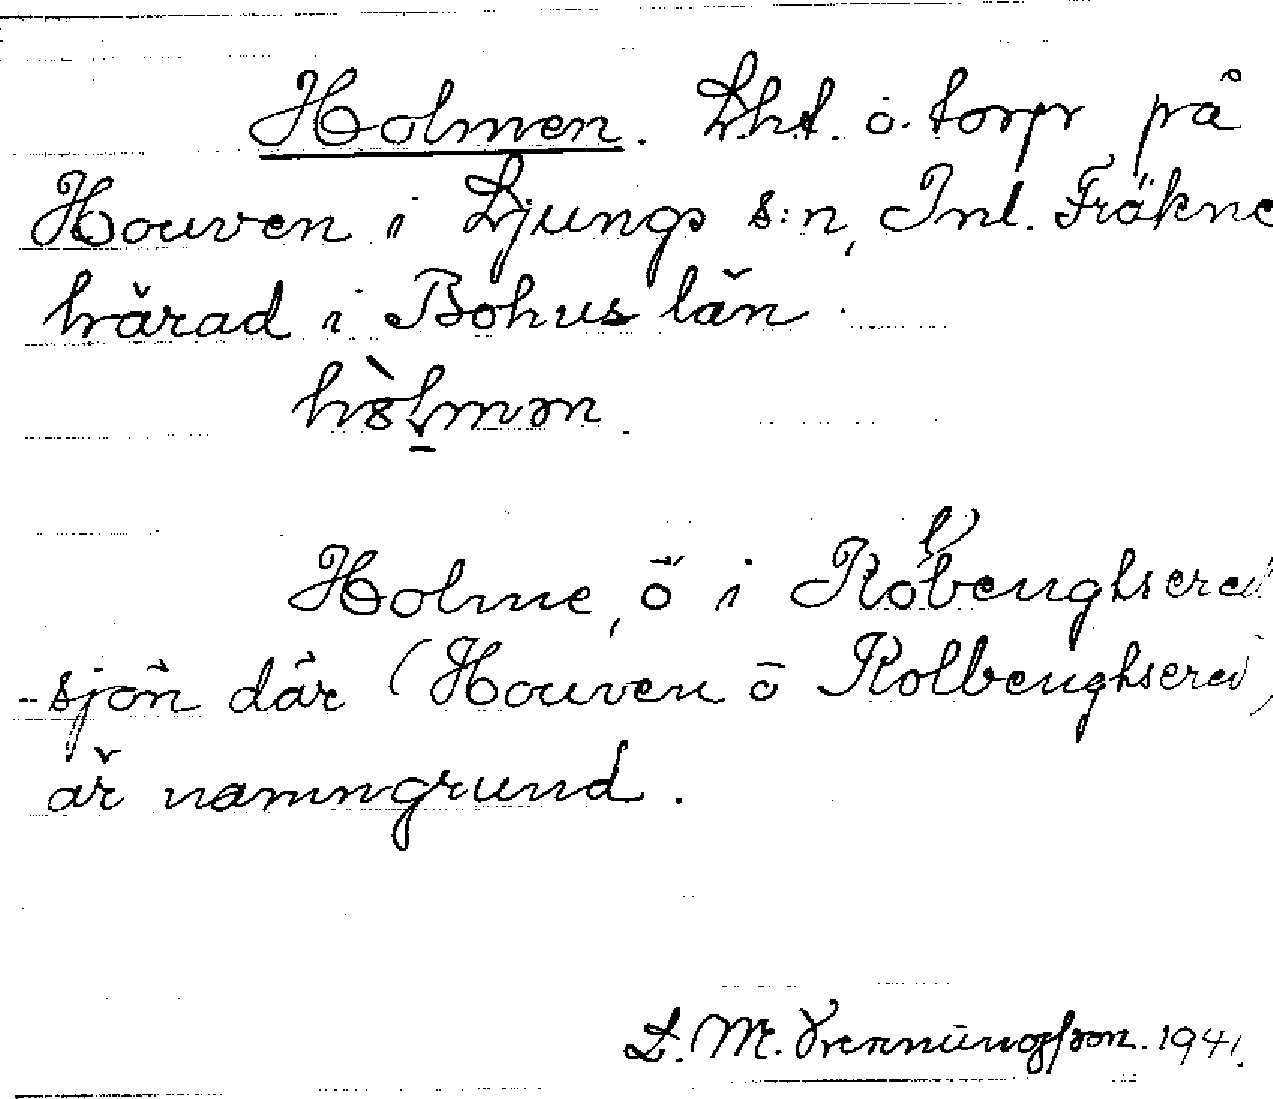 Holmen. Lht. o. torp på
Houven i Ljungs s:n, Inl. Fräkne
härad i Bohus län.
hòlmən.
Holme, ö i Rolbenghsered
-sjön där (Houven o Rolbengtsered)
är namngrund.
L. M. 1941.